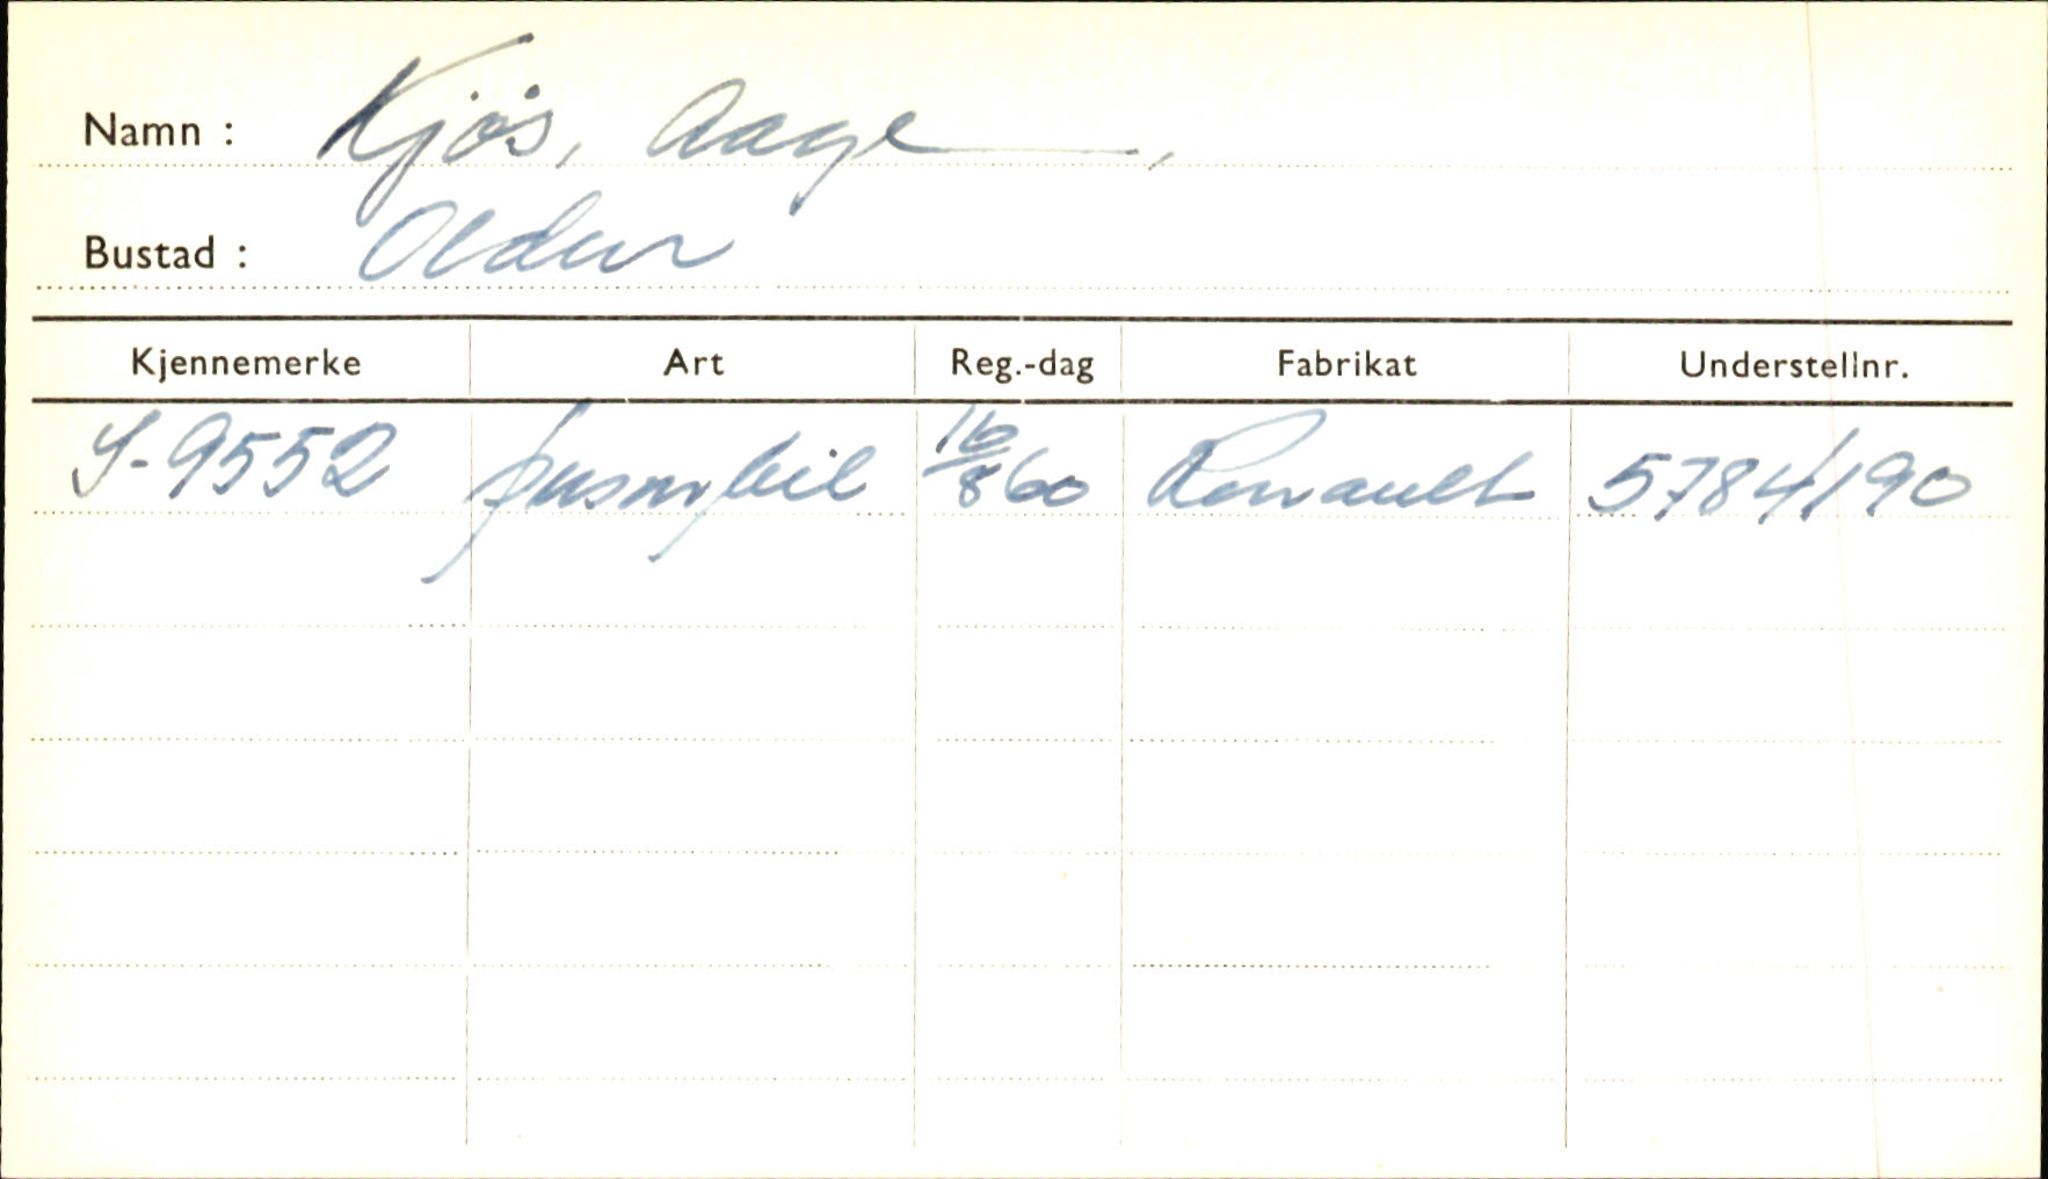 Namn : Kjös, Aage ,
Bustad : Olden
Kjennemerke Art Reg.-dag Fabrikat Understellnr.
S-9552 personbil 16/8 60 Renault 5784190